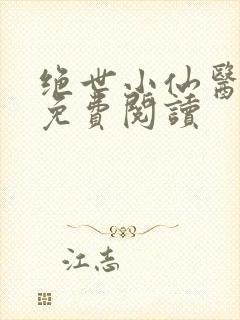 绝世小仙醫
免費閱讀
江志